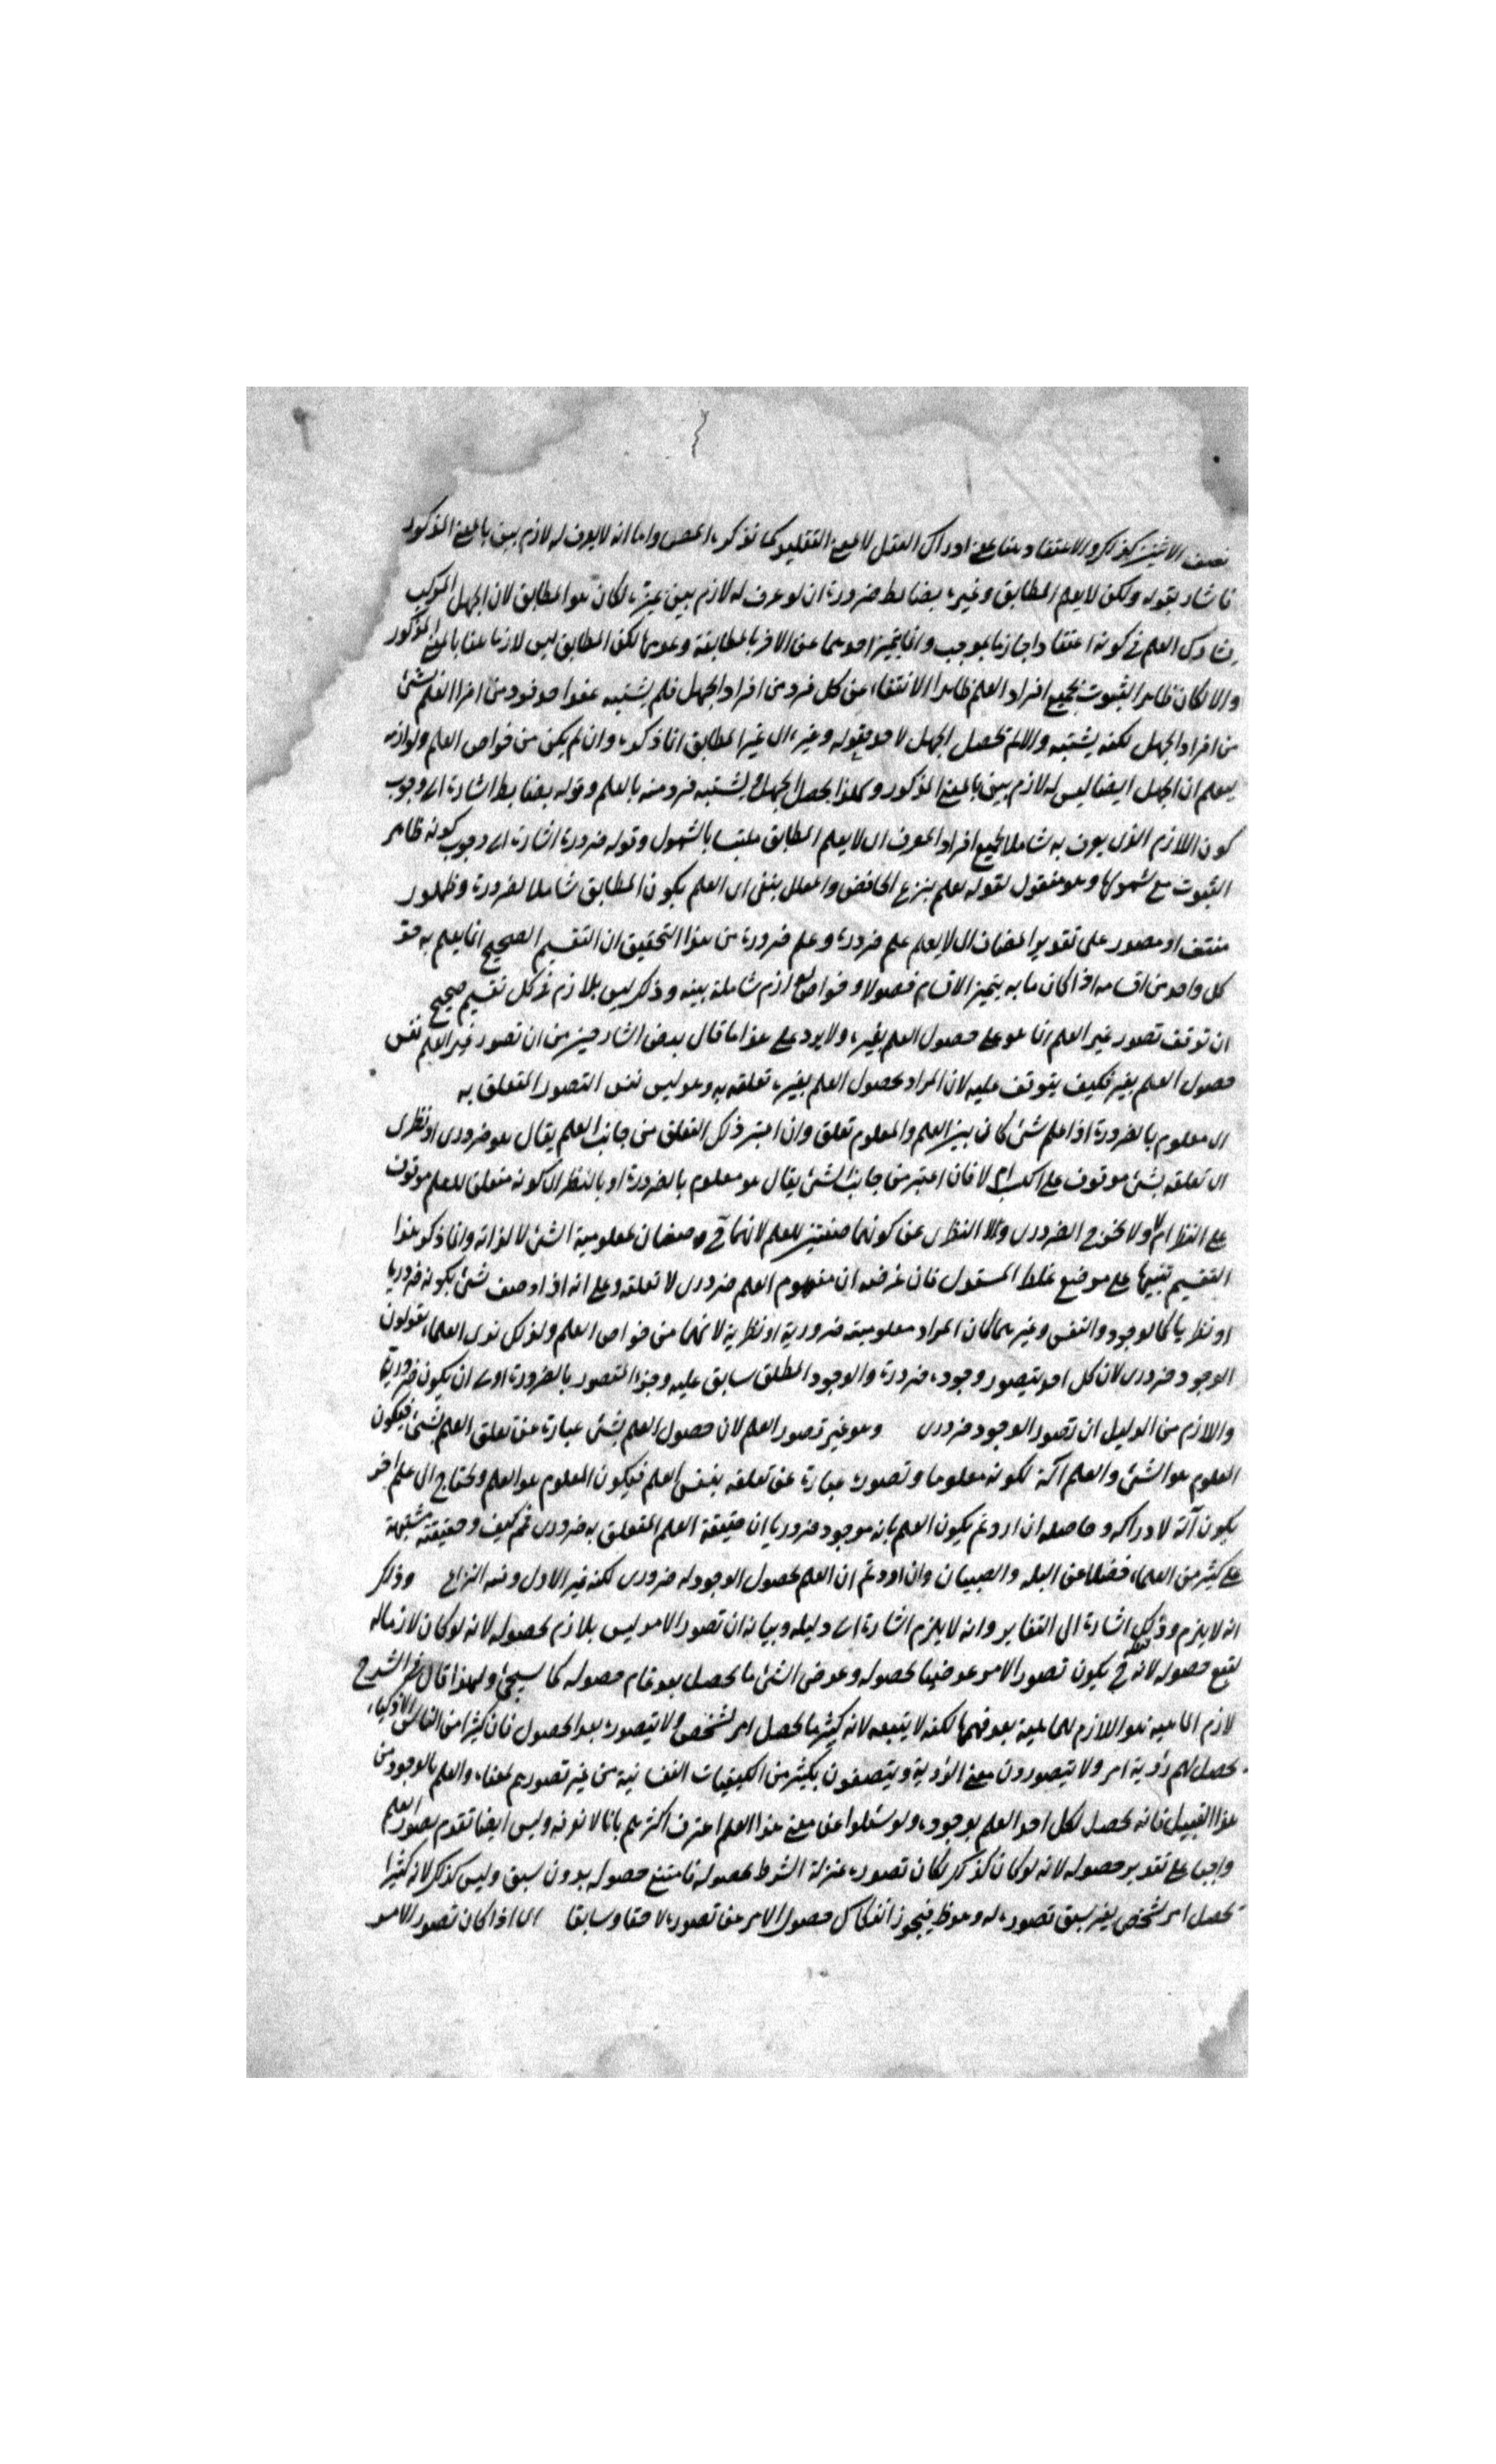 نصف الاثنين كذلك والاعتقاد هنا بمعنى ادراك العقل لا بمعنى التقليد كما ذكره المص واما انه لا يعرف له لازم بين بالمعنى المذكور
فاشار بقوله ولكن لا يعلم المطابق وغيره بضابط ضرورة ان لو عرف له لازم بين غيره لكان هو المطابق لان الجهل المركب
يشارك العلم في كونه اعتقادا جازما لموجب وانما يتميز احدهما عن الاخر بالمطابقة وعدمها لكن المطابق ليس لازما بينا بالمعنى المذكور
والا لكان ظاهر الثبوت لجميع افراد العلم ظاهر الانتفاء عن كل فرد من افراد الجهل فلم يشتبه عند احد فرد من افراد العلم بشئ
من افراد الجهل لكنه يشتبه والا لم يحصل الجهل لاحد فقوله وغيره اى غير المطابق انما ذكره وان لم يكن من خواص العلم ولوازمه
ليعلم ان الجهل ايضا ليس له لازم بين بالمعنى المذكور وكذا يحصل الجهل ويشتبه فرد منه بالعلم وقوله بضابط اشارة الى وجوب
كون اللازم الذى يعرف به شاملا لجميع افراد المعرف اى لا يعلم المطابق ملتبسا بالشمول وقوله ضرورة اشارة الى وجوب كونه ظاهر
الثبوت مع شمولها وهو مفعول لقوله يعلم بنزع الخافض والمعلل بنفى اى العلم بكون المطابق شاملا لضرورة وظهور
منتف او مصدر على تقدير المضاف اى لا يعلم علم ضرورة وعلم ضرورة من هذا التحقيق ان التقسيم الصحيح انما يعلم به حد
كل واحد من اقسامه اذا كان ما به يتميز الاقسام فصولا وخواص لوازم شاملة بينة وذلك ليس بلازم في كل تقسيم صحيح
ان توقف تصور غير العلم انما هو على حصول العلم بغيره ولا يرد على هذا ما قال بعض الشارحين من ان تصور غير العلم نفس
حصول العلم بغيره فكيف يتوقف عليه لان المراد بحصول العلم بغيره تعلقه به وهو ليس نفس التصور المتعلق به
اى معلوم بالضرورة اذا علم شئ كان بين العلم والمعلوم تعلق وان اعتبر ذلك التعلق من جانب العلم يقال هو ضرورى او نظرى
اى تعلقه بشئ موقوف على الكسب ام لا فان اعتبر من جانب الشئ يقال هو معلوم بالضرورة او بالنظر اى كونه متعلق للعلم موقوف
على النظر ام لا ولا يخرج الضرورى ولا النظرى عن كونهما صفتين للعلم لانهما ح وصفان لمعلومية الشئ لا لذاته وانما ذكر هذا
التقسيم تنبيها على موضع غلط المستدل فان غرضه ان مفهوم العلم ضرورى لا تعلقه وعلى انه اذا وصف شئ بكونه ضروريا
او نظريا كالوجود والنفس وغيرهما كان المراد معلوميته ضرورية او نظرية لانهما من خواص العلم ولذلك ترى العلماء يقولون
الوجود ضرورى لان كل احد يتصور وجوده ضرورة والوجود المطلق سابق عليه وجزء المتصور بالضرورة اولى ان يكون ضروريا
واللازم من الدليل ان تصور الوجود ضرورى وهو غير تصور العلم لان حصول العلم بشئ عبارة عن تعلق العلم بشئ فيكون
المعلوم هو الشئ والعلم آلة لكونه معلوما وتصوره عبارة عن تعلقه بنفس العلم فيكون المعلوم هو العلم ويحتاج الى علم اخر
يكون آلة لادراكه وحاصله ان اردتم بكون العلم بانه موجود ضروريا ان حقيقة العلم المتعلق به ضرورى فم كيف وحقيقته مشتبهة
على كثير من العلماء فضلا عن البله والصبيان وان اردتم ان العلم بحصول الوجود له ضرورى لكنه غير الاول وفيه النزاع وذلك
انه لا يلزم وذلك اشارة الى التغاير وانه لا يلزم اشارة الى دليله وبيانه ان تصور الامر ليس بلازم لحصوله لانه لو كان لازما له
لتبع حصوله لانه ح يكون تصور الامر عرضيا لحصوله وعرض الشئ ما يحصل بعد تمام حصوله كما سيجئ ولهذا قال في الشرح
لازم الماهية هو اللازم للماهية بعد فهمها لكنه لا يتبعه لانه كثيرا ما يحصل امر لشخص ولا يتصوره بعد الحصول فان كثيرا من الناس الاذكياء
يحصل لهم رؤية امر ولا يتصورون معنى الرؤية ويتصفون بكثير من الكيفيات النفسانية من غير تصورهم لمعناه والعلم بالوجود من
هذا القبيل فانه يحصل لكل احد العلم بوجوده ولو سئلوا عن معنى هذا العلم اعترف اكثرهم بانا لا نعرفه وليس ايضا تقدم تصور العلم
واجبا على تقدير حصوله لانه لو كان كذلك لكان تصوره بمنزلة الشرط لحصوله فامتنع حصوله بدون سبق وليس كذلك لانه كثيرا
يحصل امر لشخص بغير سبق تصوره له وهو ظ فيجوز انفكاك حصول الامر عن تصوره لاحقا وسابقا اى اذا كان تصور الامر